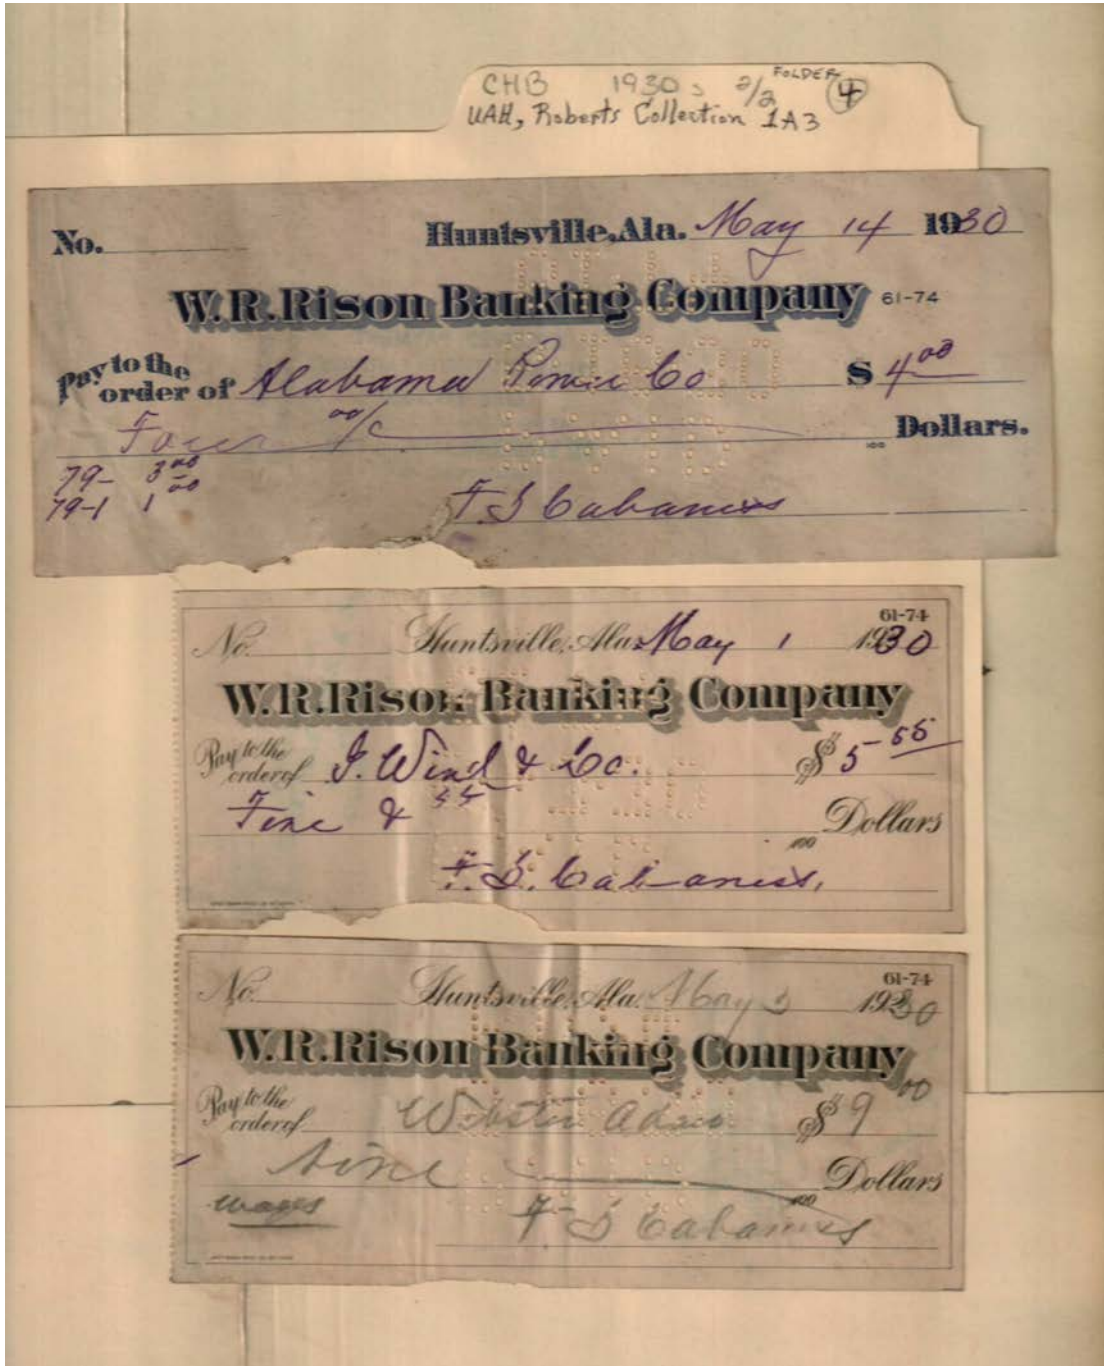 CHB 1930s 2/2 FOLDER 4
UAH, Roberts Collection 1A3
No. Huntsville, Ala. May 14 1930
W. R. Rison Banking Company 61-74
Pay to the order of Alabama Power Co $ 4 00
Four 00/c 100 Dollars.
79- 3 00
79-1 1 00
F. S Cabaniss
61-74
No. Huntsville, Ala. May 1 1930
W. R. Rison Banking Company
Pay to the order of I. Wind & Co. $ 5 55
Five & 55 100 Dollars
F. S. Cabaniss.
61-74
No. Huntsville, Ala. May 3 1930
W. R. Rison Banking Company
Pay to the order of Webster $ 9 00
Nine 100 Dollars
wages
F S Cabaniss